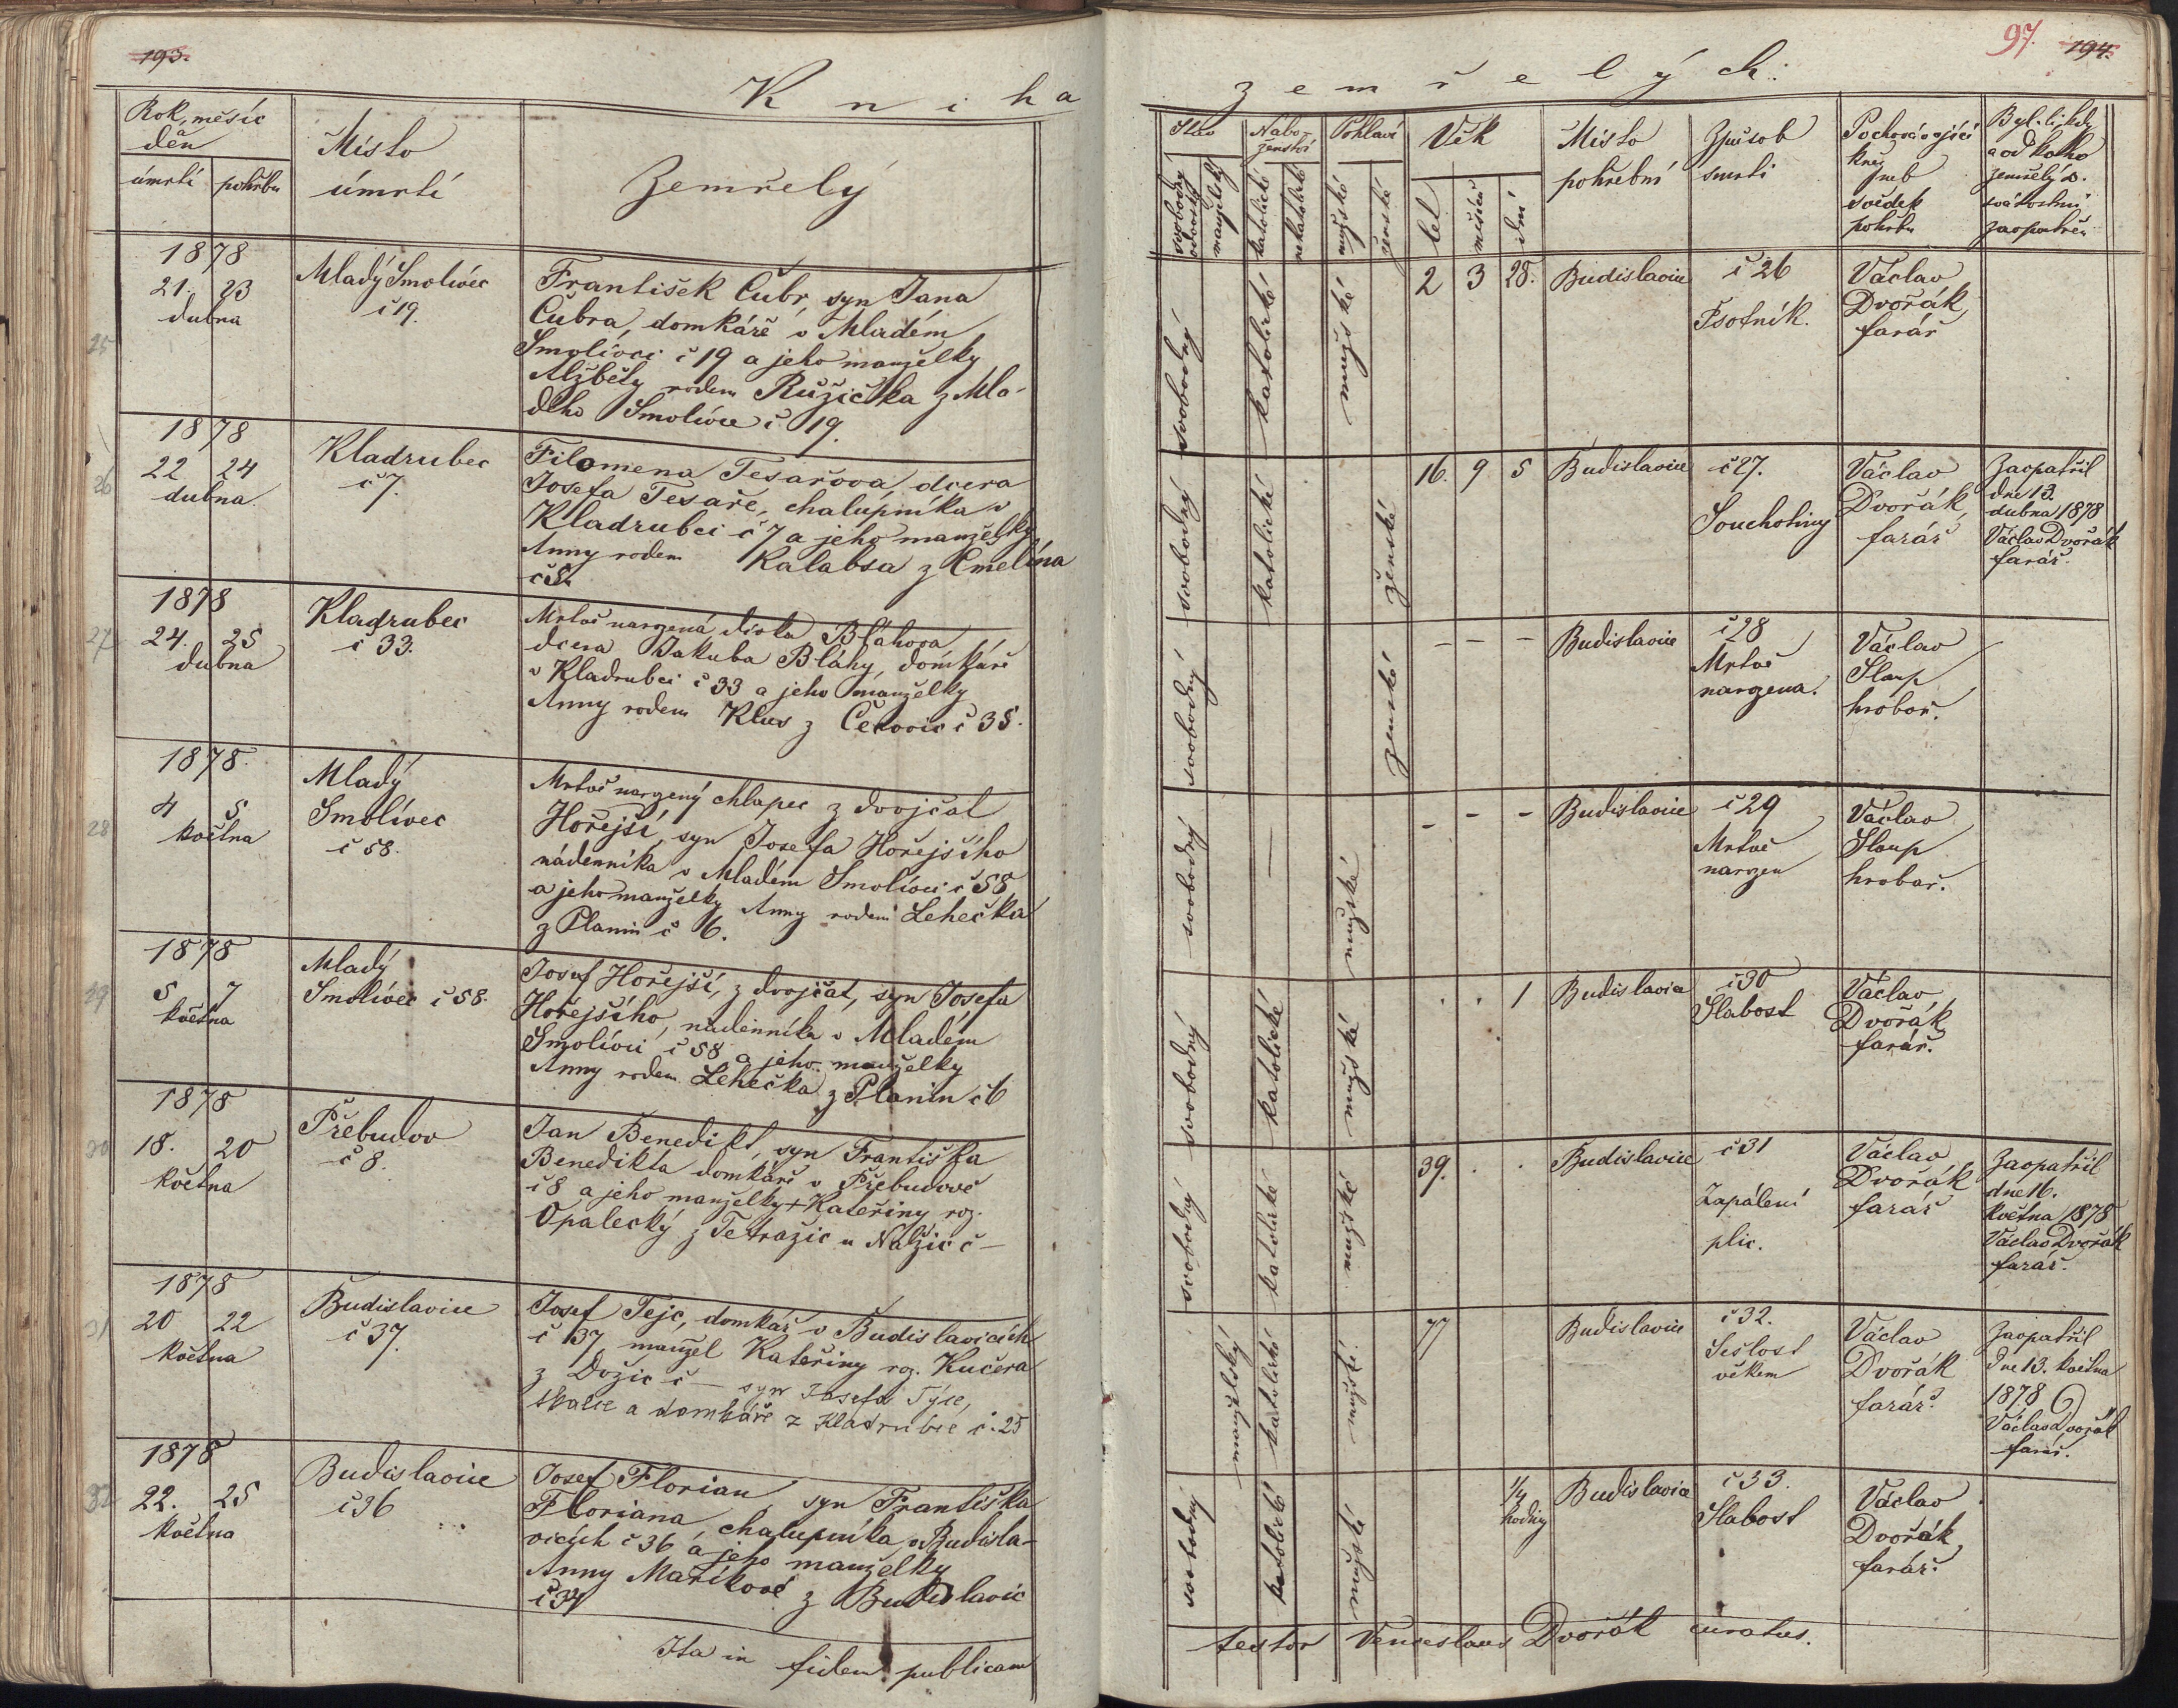 193.
Kniha
Rok, měsíc
a
den
úmrtí
pohřbu
Místo
úmrtí
Zemřelý
1878
21. 23
dubna
Mladý Smolivec
č 19.
František Čubr, syn Jana
Čubra, domkáře v Mladém
Smolivci č 19 a jeho manželky
Alžběty rodem Růžička z Mla-
dého Smolivce č 19.
25
1878
22 24
dubna
Kladrubec
č 7.
Filomena Tesařova dcera
Josefa Tesaře, chalupníka v
Kladrubci č 7 a jeho manželky
Anny rodem Kalabsa z Emelína
č 8.
26
1878
24. 25
dubna
Kladrubec
č 33.
Mrtvě narzená dívka Bláhova
dcera Jakuba Bláhy, domkáře
v Kladrubci č 33 a jeho manželky
Anny rodem Klus z Čečovic č 38.
27
1878.
4 5
května
Mladý
Smolívec
č 58.
Mrtvě narzený chlapec z dvojčat
Hořejší, syn Josefa Hořejšího
nádenníka v Mladém Smolívci č 58
a jeho manželky Anny rodem Lehečka
z Planin č 6.
28
1878
5 7
května
Mladý
Smolivec č 58.
Josef Hořejší, z dvojčat, syn Josefa
Hořejšího, nádenníka v Mladém
Smolivci č 58 a jeho manželky
Anny rodem Lehečka z Planin č 6
29
1878
18. 20
května
Přebudov
č 8.
Jan Benedikt, syn Františka
Benedikta domkáře v Přebudově
č 8 a jeho manželky + Kateřiny roz.
Opalecký z Tetražic u Nalžic č —
30
1878
20 22
května
Budislavice
č 37.
Josef Tejc, domkář v Budislavicích
č 37 manžel Kateřiny roz. Kučera
z Dožic č — syn Josefa Týce,
tkalce a domkáře z Kladrubce č. 25
31
1878
22. 25
května
Budislavice
č 36
Josef Florian, syn Františka
Floriana, chalupníka v Budisla-
vicých č 36 a jeho manželky
Anny Maříkové z Budislavic
č 34
32
Ita in fidem publicam
97. 194.
zemřelých.
Stav
svobodný
ovdovělý
manželský
Nábo-
ženství
katolické
nekatolické
Pohlaví
mužské
ženské
Věk
let
měsíců
dní
Místo
pohřební
Způsob
smrti
Pochovávající
kněz
neb
svědek
pohřbu
Byl-li kdy
a od koho
zemřelý s.
svátostmi
zaopatřen
svobodný katolické mužské 2 3 28. Budislavice č 26
Psotník.
Václav
Dvořák,
farář
svobodný katolické ženské 16. 9 5 Budislavice č 27.
Souchotiny
Václav
Dvořák,
farář
Zaopatřil
dne 13.
dubna 1878
Václav Dvořák
farář.
svobodný ženské – – – Budislavice č 28
Mrtvě
narzena.
Václav
Sloup
hrobař.
svobodný — mužské – – – Budislavice č 29
Mrtvě
narzen
Václav
Sloup
hrobař.
svobodný katolické mužské . . 1 Budislavice č 30
Slabost
Václav
Dvořák,
farář.
svobodný katolické mužské 39. . . Budislavice č 31
Zapálení
plic.
Václav
Dvořák
farář
Zaopatřil
dne 16.
května 1878
Václav Dvořák
farář.
manželský katolické mužské 77 Budislavice č 32.
Sešlost
věkem
Václav
Dvořák
farář.
Zaopatřil
dne 13. května
1878
Václav Dvořák
farář.
svobodný katolické mužské 1/4
hodiny
Budislavice č 33.
Slabost
Václav
Dvořák,
farář.
testor Venceslaus Dvořák curatus.